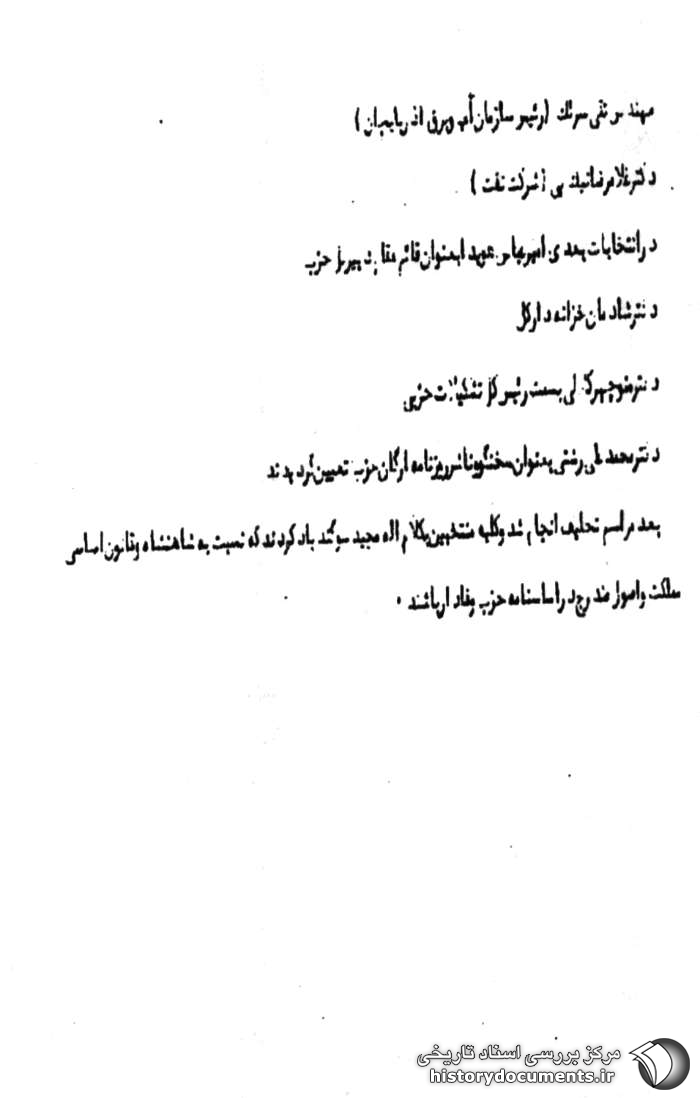 مهندس تقی سرلک (رئیس سازمان آب وبرق اذربایجان)
دکترغلامرضانیک پی (شرکت نفت)
درانتخابات بعدی امیرعباس هویدا بعنوان قائم مقام دبیرکل حزب
دکترشادمان خزانه دارکل
دکترمنوچهر کلالی بسمت رئیس کل تشکیلات حزبی
دکترمحمدعلی رشتی بعنوان سخنگو وناشرروزنامه ارگان حزب تعیین گردیدند
بعد مراسم تحلیف انجام شد وکلیه منتخبین بکلام اله مجید سوگند یاد کردند که نسبت به شاهنشاه وقانون اساسی
مملکت واصول مندرج دراساسنامه حزب وفادارباشند .
مرکز بررسی اسناد تاریخی
historydocuments.ir